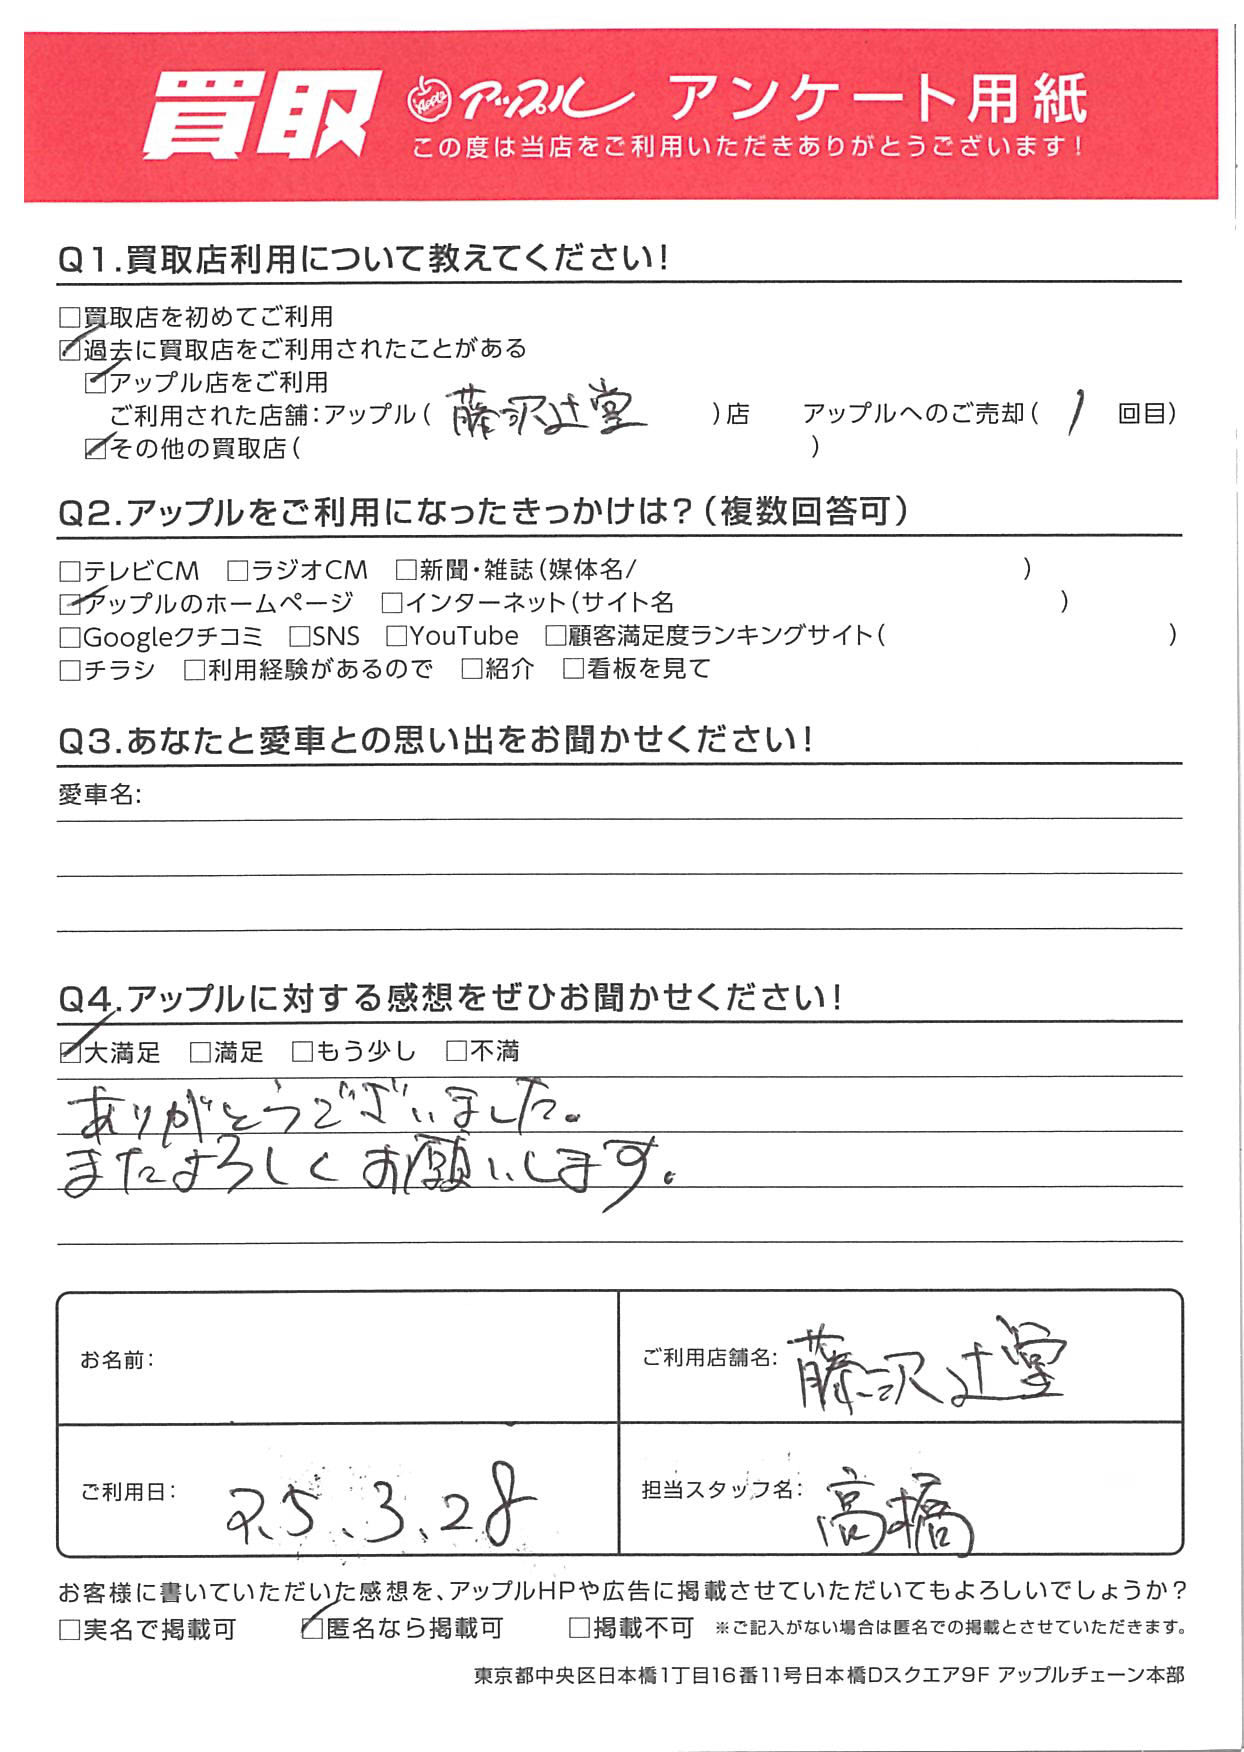 買取 Apple アップル アンケート用紙
この度は当店をご利用いただきありがとうございます!
Q1.買取店利用について教えてください!
□買取店を初めてご利用
☑過去に買取店をご利用されたことがある
☑アップル店をご利用
ご利用された店舗:アップル(藤沢辻堂)店 アップルへのご売却(1回目)
☑その他の買取店( )
Q2.アップルをご利用になったきっかけは?(複数回答可)
□テレビCM □ラジオCM □新聞・雑誌(媒体名/ )
☑アップルのホームページ □インターネット(サイト名 )
□Googleクチコミ □SNS □YouTube □顧客満足度ランキングサイト( )
□チラシ □利用経験があるので □紹介 □看板を見て
Q3.あなたと愛車との思い出をお聞かせください!
愛車名:
Q4.アップルに対する感想をぜひお聞かせください!
☑大満足 □満足 □もう少し □不満
ありがとうございました。
またよろしくお願いします。
お名前: ご利用店舗名: 藤沢辻堂
ご利用日: R5.3.28 担当スタッフ名: 高橋
お客様に書いていただいた感想を、アップルHPや広告に掲載させていただいてもよろしいでしょうか?
□実名で掲載可 ☑匿名なら掲載可 □掲載不可 ※ご記入がない場合は匿名での掲載とさせていただきます。
東京都中央区日本橋1丁目16番11号日本橋Dスクエア9F アップルチェーン本部